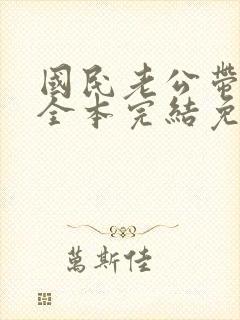 國民老公帶
全本完結免
萬斯佳